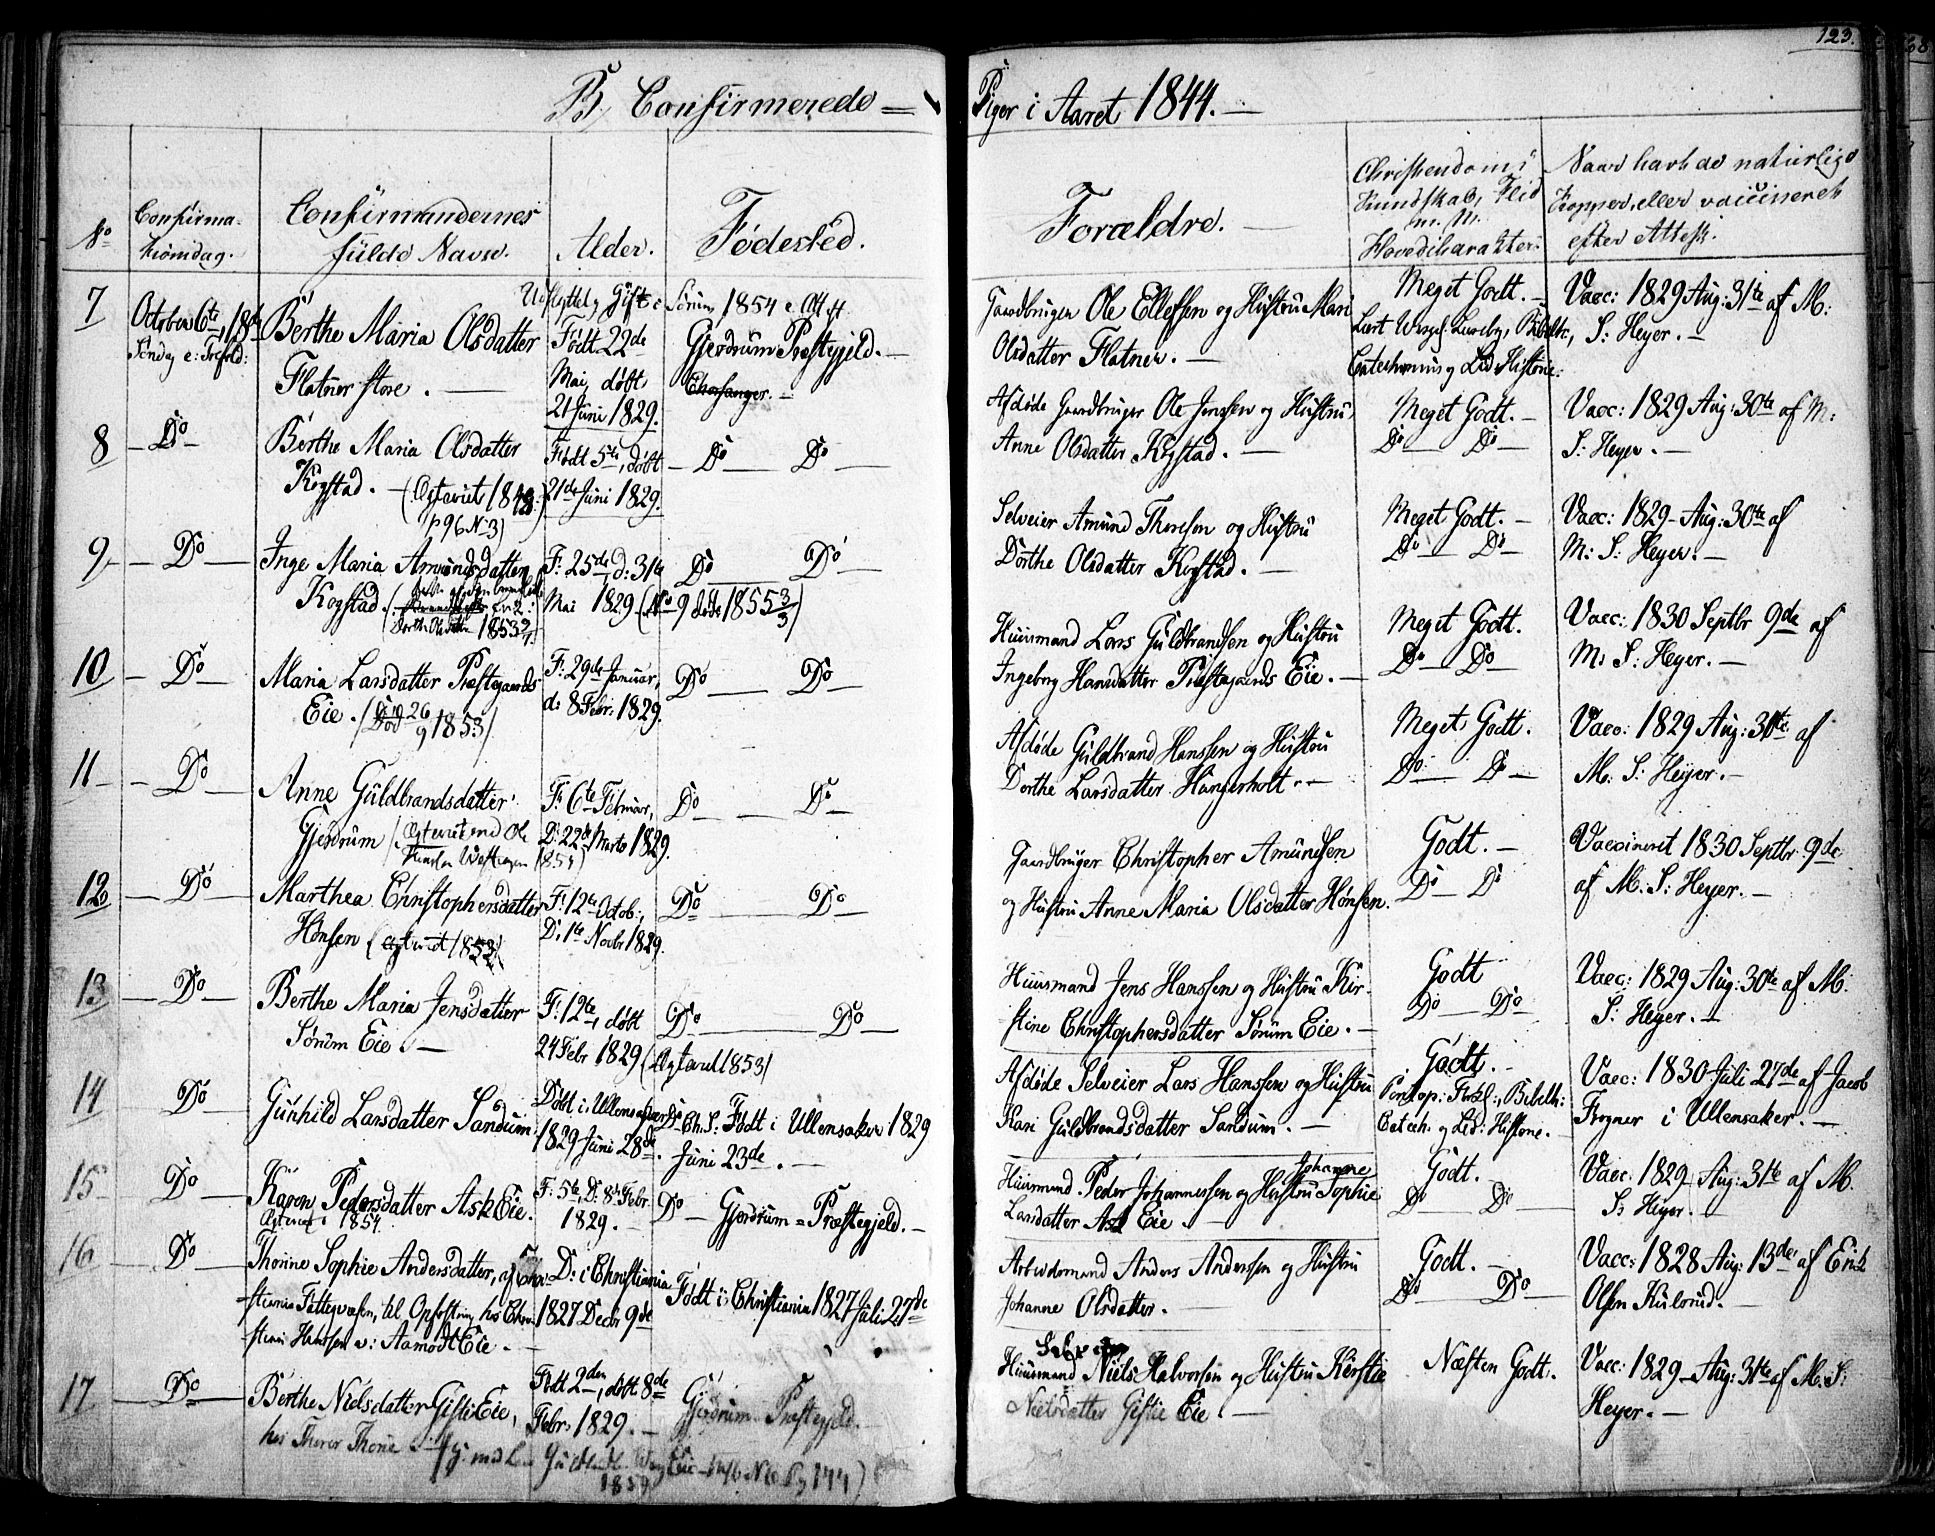 123.
B, Confirmerede =
Piger i Aaret 1844. —
No
Confirma-
tionsdag.
Confirmandernes
fulde Navne.
Alder.
Fødested.
Forældre. —
Christendoms
Kundskab, Flid
m. M.
Hovedcharakter:
Naar havt de naturlige
Kopper, eller vaccineret
efter Attest.
7
October 6te, 18de
Søndag e: Trefold:
Berthe Maria Olsdatter
Flatner store. —
Udflyttet, Gift i Sørum, 1854 e. Att
Født 22de
Mai, døbt
21 Juni 1829.
Gjerdrum Præstegjeld. —
Gaardbruger Ole Ellefsen og Hustru Mari
Olsdatter Flatner. —
Meget Godt. —
Catechismus og Lid: Historie.
Vacc: 1829 Aug: 31te af M:
S: Heyer. —
8
Do
Berthe Maria Olsdatter
Kogstad. — (Ægteviet 1848
p 96 N: 3)
Født 5te, døbt
21de Juni 1829.
Do Do
Afdøde Gaardbruger Ole Jenssen og Hustru
Anne Olsdatter Kogstad. —
Meget Godt. —
Do Do
Vacc: 1829 Aug: 30te af M:
S: Heyer. —
9
Do
Inge Maria Amundsdatter
Kogstad.
Dorthe Olsdatter 1853
F: 25de, d: 31te
Mai 1829 (No 9 døde 1855 3/3)
Do Do
Selveier Amund Thoresen og Hustru
Dorthe Olsdatter Kogstad. —
Meget Godt. —
Do Do
Vacc: 1829 Aug: 30te af
M: S: Heyer. —
10
Do
Maria Larsdatter Præstegaards
Eie. (Død 26/9 1853)
F: 29de Januar,
d: 8 Febr: 1829.
Do Do
Huusmand Lars Guldbrandsen og Hustru
Ingeborg Hansdatter Præstegaards Eie. —
Meget Godt.
Do Do
Vacc: 1830 Septbr 9de af
M: S: Heyer. —
11
Do
Anne Guldbrandsdatter
Gjerdrum (Ægteviet med Ole
1854)
F: 6te Februar,
D: 22de Marts 1829.
Do Do
Afdøde Guldbrand Hanssen og Hustru
Dorthe Larsdatter Hangerholt. —
Meget Godt.
Do Do
Vacc: 1829 Aug: 31te af
M: S: Heyer. —
12
Do
Marthea Christophersdatter
Hønsen (Ægteviet 1853)
F: 12te Octob:,
D: 1te Novbr 1829.
Do Do
Gaardbruger Christopher Amundsen
og Hustru Anne Maria Olsdatter Hønsen.
Godt. —
Do Do
Vaccineret 1830 Septbr 9de
af M. S: Heyer. —
13
Do
Berthe Maria Jensdatter
Sørum Eie. —
F: 12te, døbt
24 Febr 1829 (Ægteviet 1853)
Do Do
Huusmand Jens Hanssen og Hustru Kir-
stine Christophersdatter Sørum Eie. —
Godt
Do Do
Vacc: 1829 Aug: 30te af M:
S: Heyer. —
14
Do
Gunhild Larsdatter Sandum.
Døbt i Ullensager
1829 Juni 28de.
Født i Ullensaker 1829
Juni 23de. —
Afdøde Selveier Lars Hanssen og Hustru
Kari Guldbrandsdatter Sandum. —
Godt. —
Pontop: Forkl:, Bibelh:
Catech. og Lid: Historie. —
Vacc: 1830 Juli 27de af Jacob
Frogner i Ullensaker. —
15
Do
Karen Pedersdatter Ask Eie.
Ægteviet 1854
F: 5te, D: 8de Febr
1829. —
Do — Gjerdrum = Præstegjeld. —
Huusmand Peder Johannessen og Hustru Johanne Sophie
Larsdatter Ask Eie. —
Godt.
Do Do
Vacc: 1829 Aug: 31te af M.
S: Heyer. —
16
Do
Thonne Sophie Andersdatter, af Chri-
stiania Fattigvæsen, til Opfostring hos Chri-
stian Hanssen Aamodt Eie. —
D: i Christiania
1827 Decbr 9de
Født i Christiania 1827 Juli 27de
Arbeidsmand Anders Anderssen og Hustru
Johanne Olsdatter.
Godt. —
Do Do
Vacc: 1828 Aug: 13de af Erik
Olsen Kulsrud. —
17
Do
Berthe Nielsdatter Gistie Eie,
hos Thorer Thone
Født 2den, døbt 8de
Febr 1829. —
1859
Gjerdrum Præstegjeld.
Huusmand Niels Halvorsen og Hustru Kirstie
Nielsdatter Gistie Eie. —
Næsten Godt.
Vacc: 1829 Aug: 31te af M. S:
Heyer. —